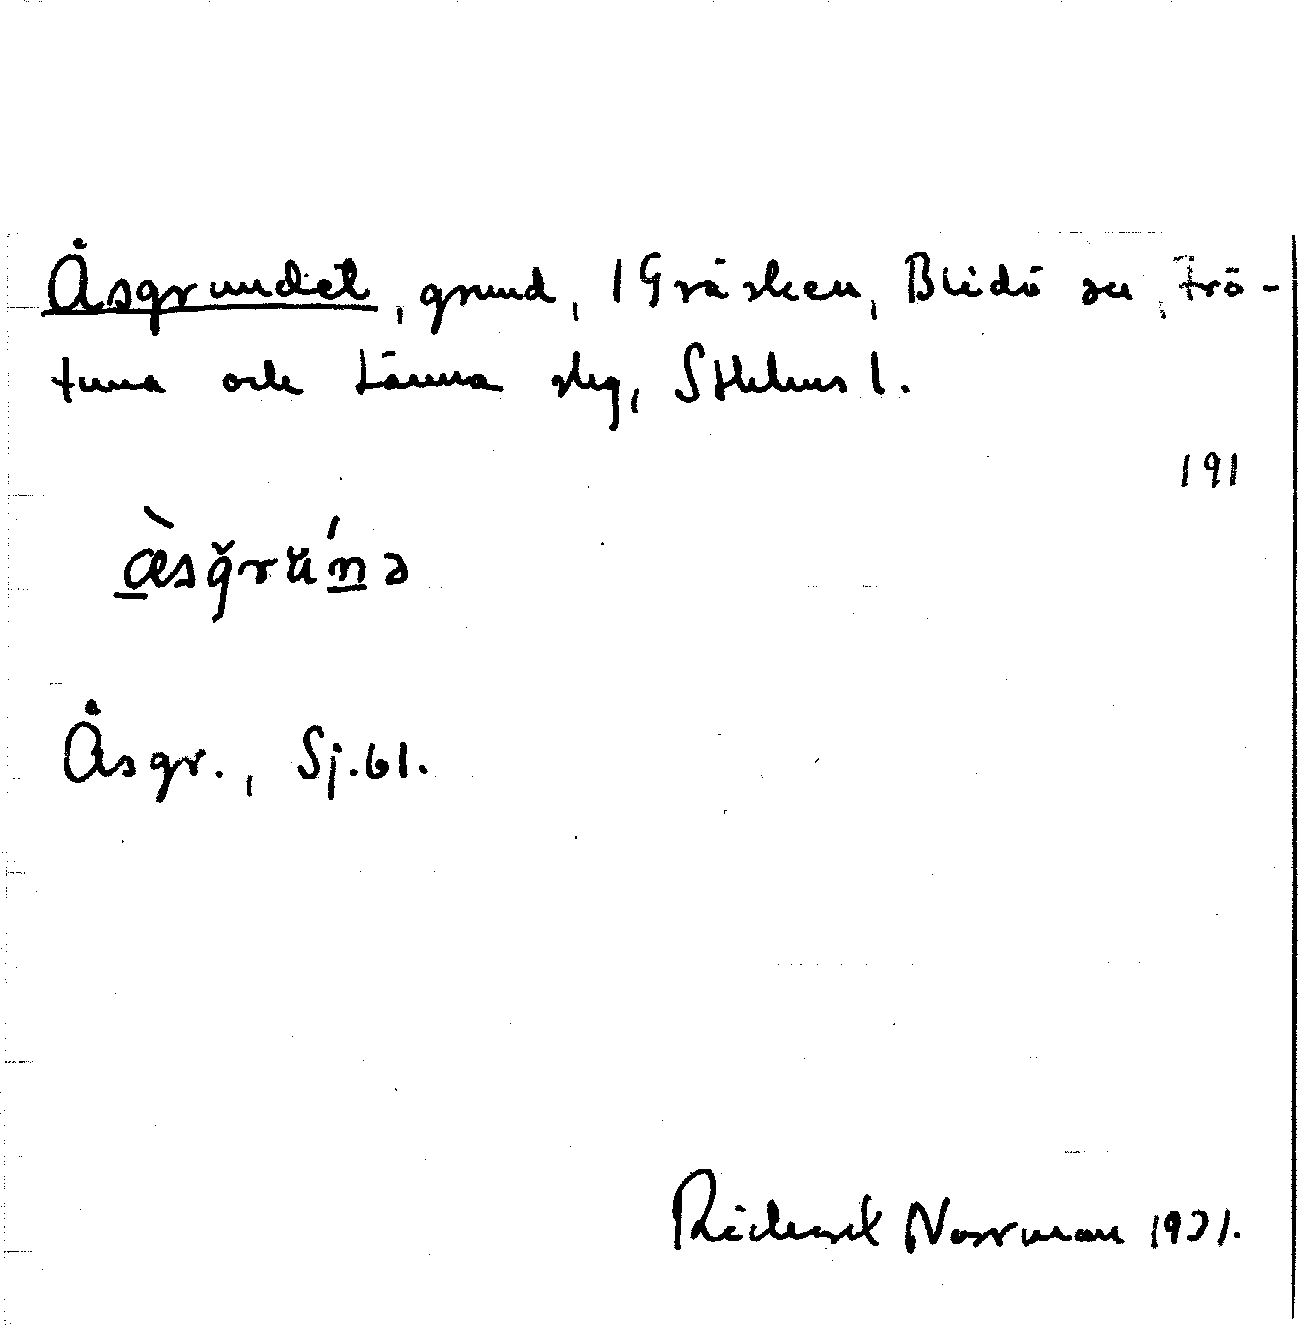 Åsgrundet, grund, 1 Gräsken, Blidö sn, Frö-
tuna och Länna slg, Sthlms l.
191
Åsgr., Sj.61.
Richard Norrman 1921.